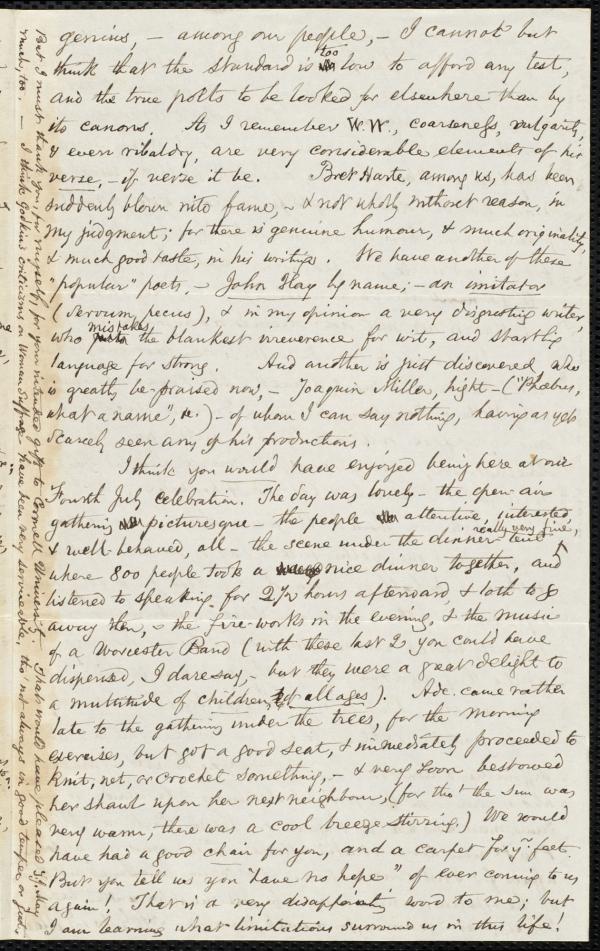 genius, - among our people, - I cannot but
think that the standard is too low to afford any test,
and the true polts to be looked for elsewhere than by
its canons. As I remember W.W., coarseness, vulgarity,
& even ribaldry, are very considerable elements of his
verse, - if verse it be. Bret Harte, among us, has been
suddenly blown into fame, - & not wholly without reason, in
my judgment; for there is genuine humour, & much originality,
& much good taste, in his writings. We have another of these
"popular" poets, - John Hay by name; - an imitator
(servum pecus), & in my opinion a very disgusting writer,
who mistakes the blankest irreverence for wit, and startling
language for strong. And another is just discovered, who
is greatly be-praised now, - Joaquin Miller, hight - ("Phoebus,
what a name", &c.) - of whom I can say nothing, having as yet
scarcely seen any of his productions.
I think you would have enjoyed being here at our
Fourth July celebration. The day was lovely - the open-air
gathering picturesque - the people attentive, interested,
& well-behaved, all - the scene under the dinner-tent really very fine,
where 800 people took a nice dinner together, and
listened to speaking for 2 1/2 hours afterward, & loth to go
away then, - the fire-works in the evening, & the music
of a Worcester Band (with these last 2 you could have
dispensed, I dare say, - but they were a great delight to
a multitude of children, of all ages). Ade. came rather
late to the gathering under the trees, for the morning
exercises, but got a good seat, & immediately proceeded to
knit, net, or crochet something, - & very soon bestowed
her shawl upon her next neighbour, (for tho' the sun was
very warm, there was a cool breeze stirring.) We would
have had a good chair for you, and a carpet for yr. feet.
But you tell us you "have no hope" of ever coming to us
again! That is a very disappointing word to me; but
I am learning what limitations surround us in this life!
But I must thank you, for myself, for your intended gift to Cornell University. That would have pleased S.J. May
much, too. - I think Godkin's criticisms on Woman Suffrage have been very serviceable, tho' not always in good temper or just.